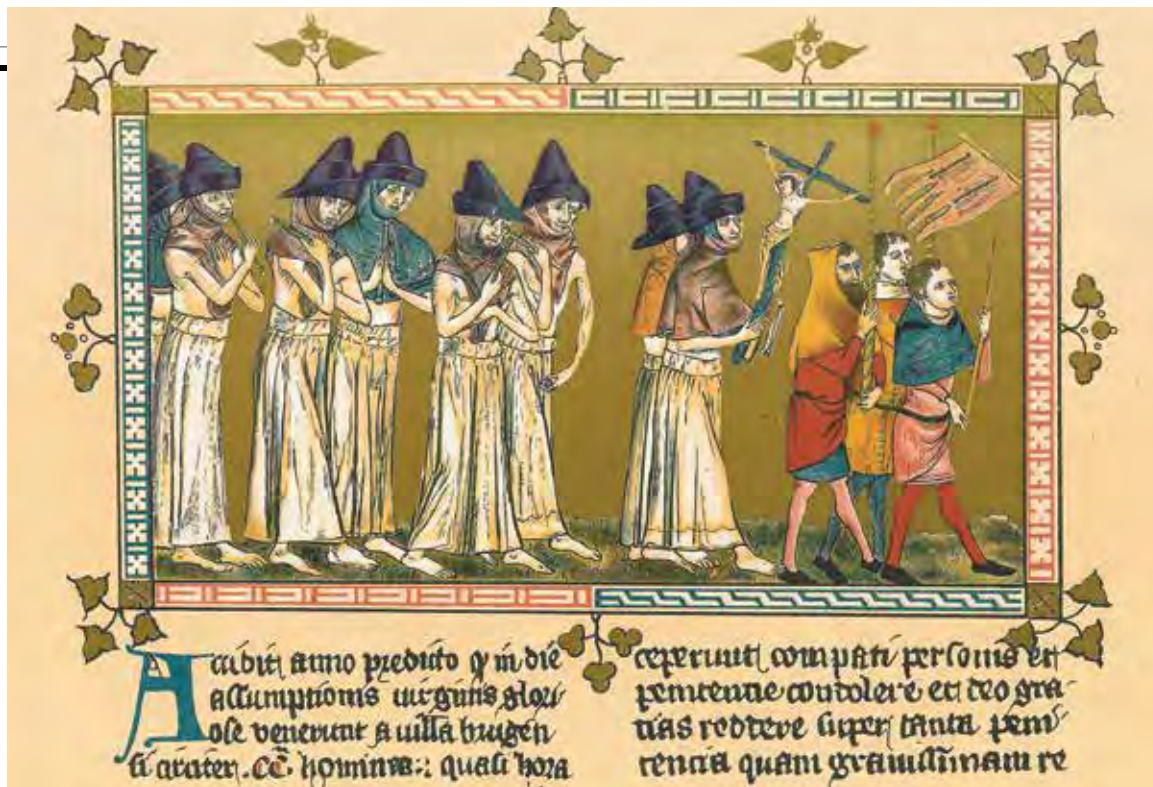 Accidit anno predicto q in die
assumptionis uirginis glori
ose venerunt a uilla brugen
si circiter .CC. homines: quasi hora
ceperunt compati personis et
penitentie condolere et deo gra
tias reddere super tanta peni
tencia quam grauissimam re